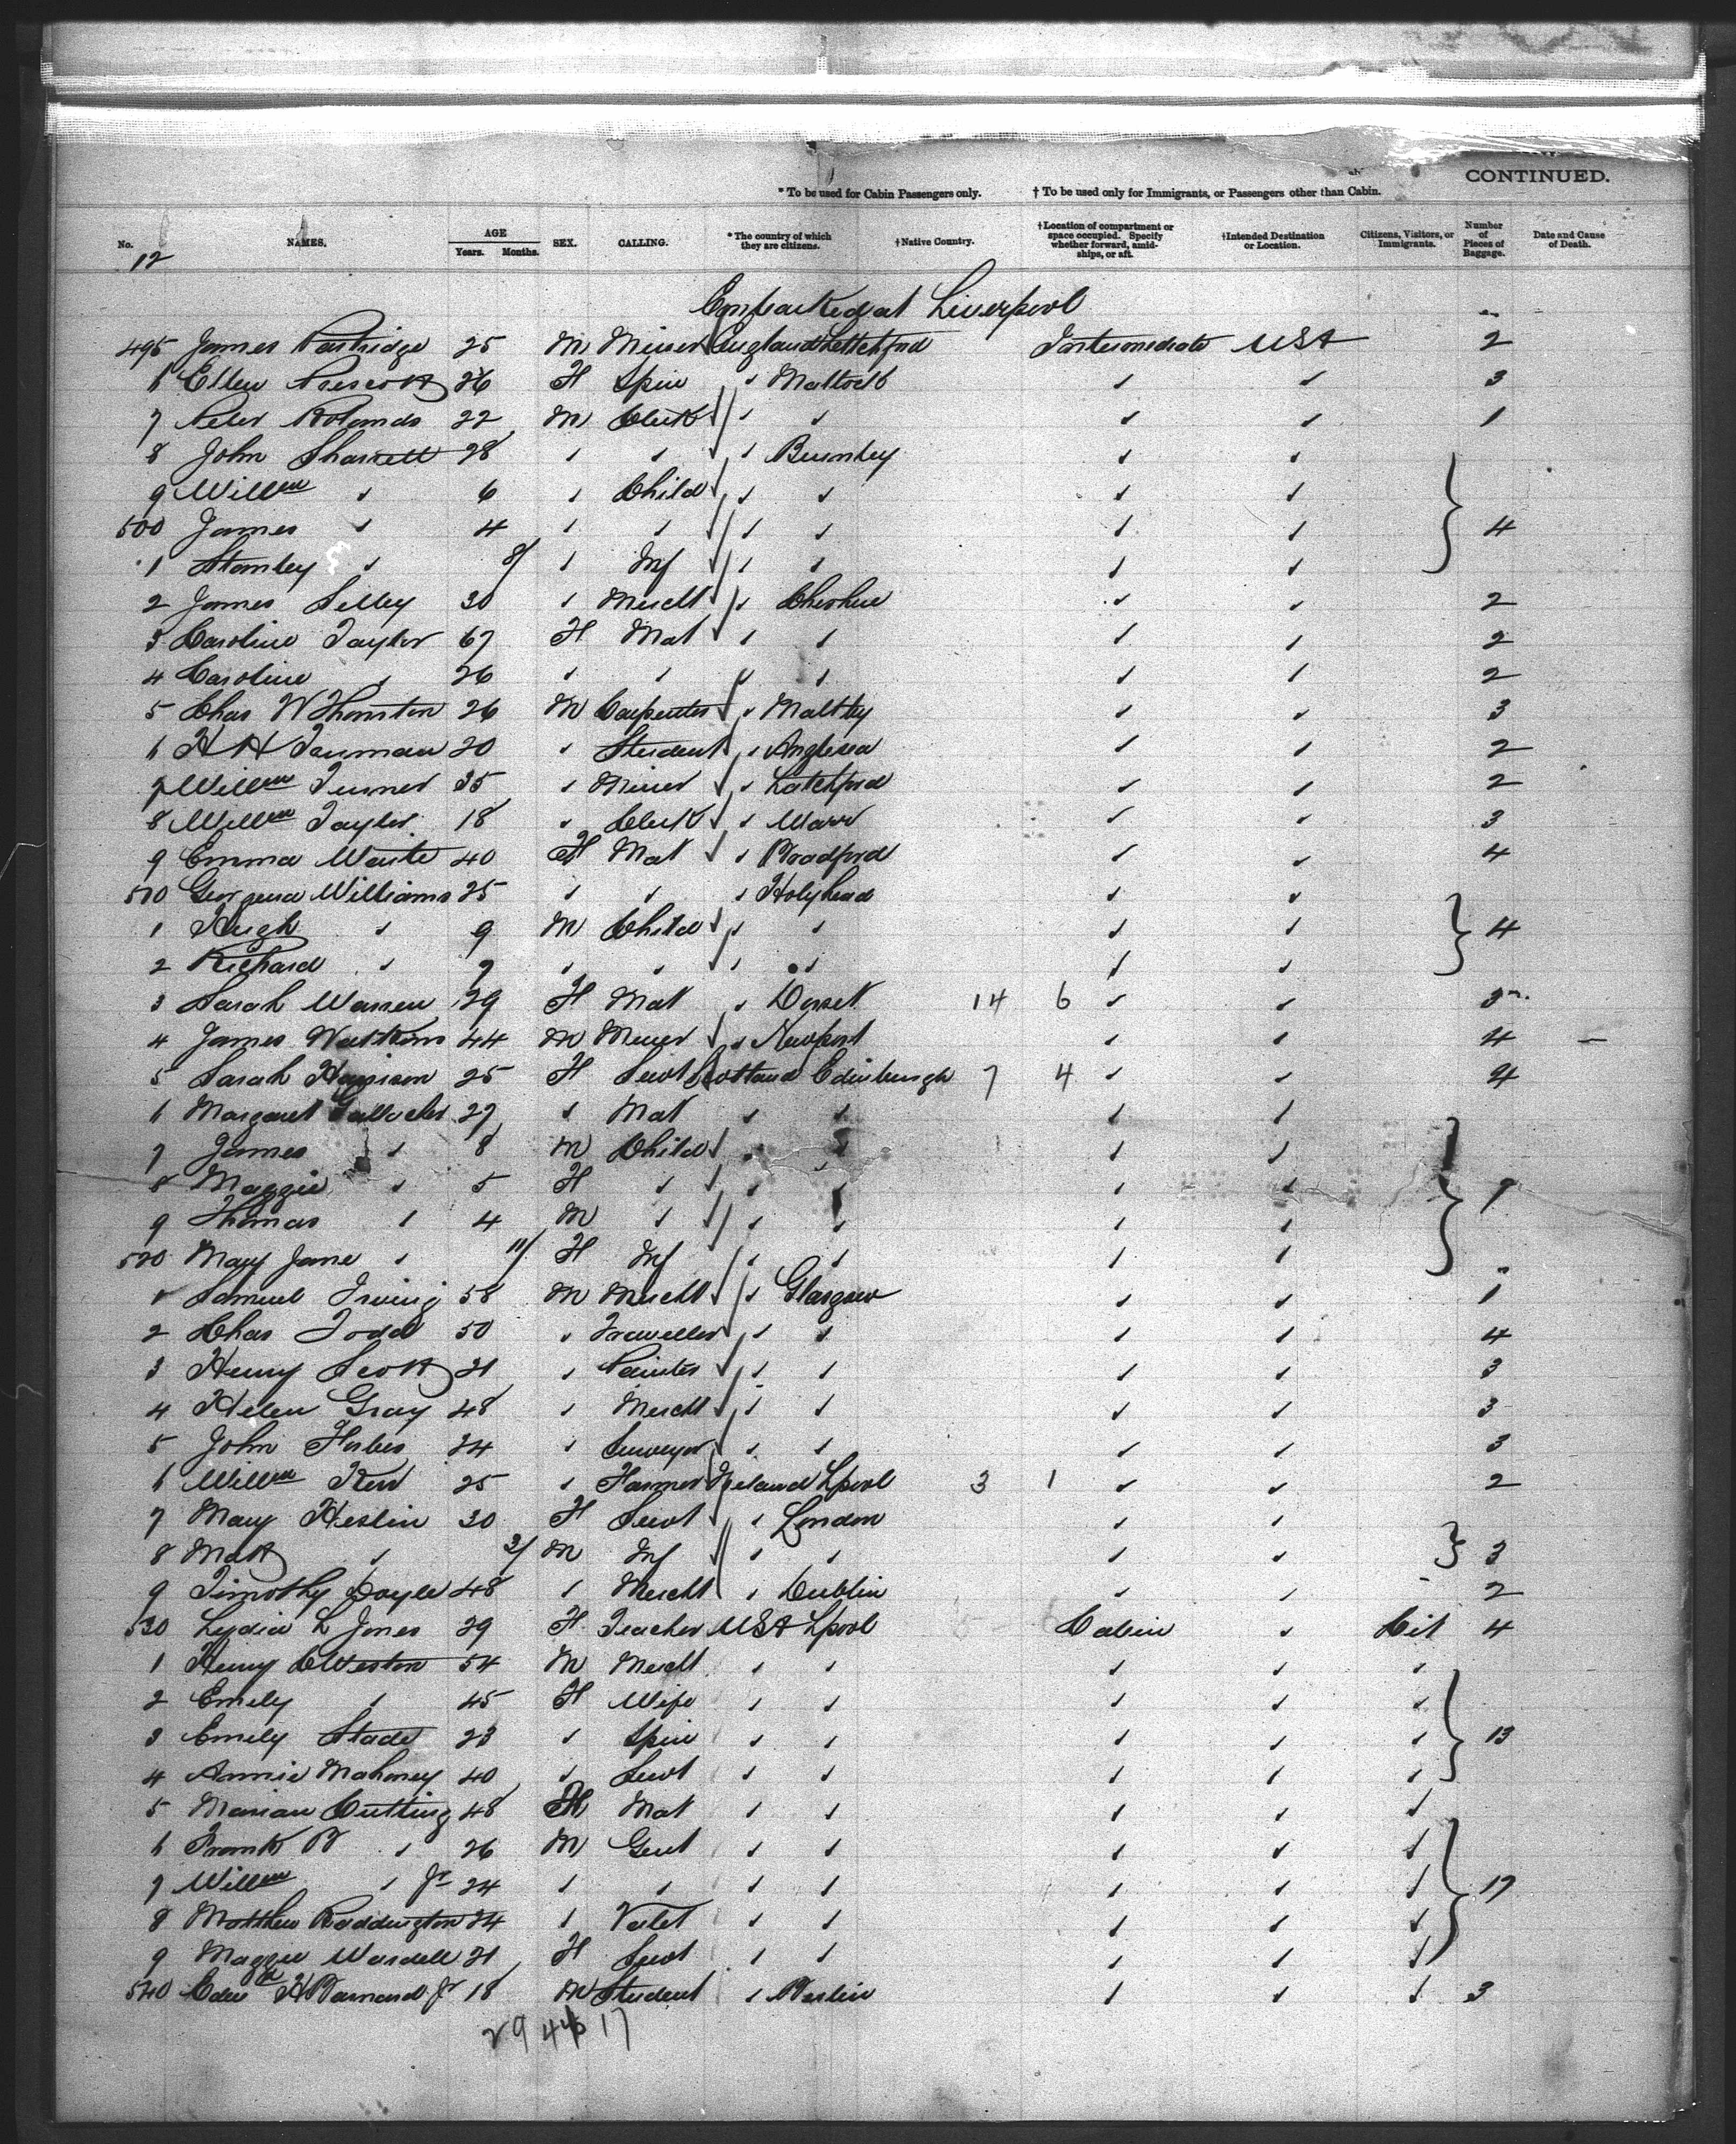 CONTINUED.
* To be used for Cabin Passengers only. † To be used only for Immigrants, or Passengers other than Cabin.
No. NAMES. AGE Years. Months. SEX. CALLING. * The country of which they are citizens. † Native Country. † Location of compartment or space occupied. Specify whether forward, amidships, or aft. † Intended Destination or Location. Citizens, Visitors, or Immigrants. Number of Pieces of Baggage. Date and Cause of Death.
12
Embarked at Liverpool
495 James Partridge 25 M Miner England Latchford Intermediate USA 2
6 Ellen Prescott 26 F Spin " Mattock " " 3
7 Peter Rolands 22 M Clerk " " " " 1
8 John Sharrett 28 " " " Burnley " "
9 Willm " 6 " Child " " " "
500 James " 4 " " " " " " 4
1 Stanley " 8/ " Inf " " " "
2 James Selley 30 " Mercht " Cheshire " " 2
3 Caroline Taylor 67 F Mat " " " " 2
4 Caroline " 26 " " " " " " 2
5 Chas W Thornton 26 M Carpenter " Maltby " " 3
6 H H Tauman 20 " Student " Anglesea " " 2
7 Willm Turner 35 " Miner " Latchford " " 2
8 Willm Taylor 18 " Clerk " " " 3
9 Emma Waite 40 F Mat " Bradford " " 4
510 Georgena Williams 25 " " " Holyhead " "
1 Hugh " 9 M Child " " " " 4
2 Richard " 7 " " " " " "
3 Sarah Warren 29 F Mat " Dorset 14 6 " " 3
4 James Watkins 44 M Miner " Newport " " 4
5 Sarah Harrison 25 F Servt Scotland Edinburgh 7 4 " " 4
6 Margaret Gallocher 27 " Mat " " " "
7 James " 8 M Child " " " "
8 Maggie " 5 F " " " " " 7
9 Thomas " 4 M " " " " "
520 Mary Jane " 11/ F Inf " " " "
1 Samuel Irving 58 M Mercht " Glasgow " " 1
2 Chas Todd 50 " Traveller " " " " 4
3 Henry Scott 21 " Painter " " " " 3
4 Helen Gray 48 " Mercht " " " " 3
5 John Forbes 24 " Surveyor " " " " 3
6 Willm Kerr 25 " Farmer Ireland Lpool 3 1 " " 2
7 Mary Heslin 30 F Servt " London " "
8 Matt " 3/ M Inf " " " " 3
9 Timothy Doyle 48 " Mercht " Dublin " " 2
530 Lydia L Jones 29 F Teacher USA Lpool Cabin " Cit 4
1 Henry C Weston 54 M Mercht " " " " "
2 Emily " 45 F Wife " " " " "
3 Emily Slade 23 " Spin " " " " " 13
4 Annie Mahoney 40 " Servt " " " " "
5 Marian Cutting 48 F Mat " " " " "
6 Frank B " 26 M Gent " " " " "
7 Willm " Jr 24 " " " " " " " 17
8 Matthew Baddington 24 " Valet " " " " "
9 Maggie Wardell 21 F Servt " " " " "
540 Edwd H Barnard Jr 18 M Student " Berlin " " " 3
29 44 17